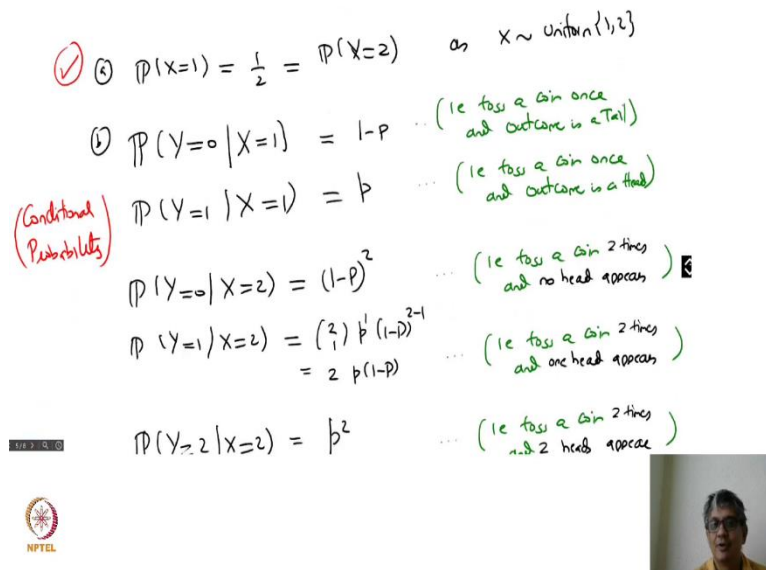 ⓐ ℙ(X=1) = 1/2 = ℙ(X=2) as X ~ Uniform{1,2}
ⓑ ℙ(Y=0|X=1) = 1-p ... (ie toss a coin once
and outcome is a Tail)
ℙ(Y=1|X=1) = p ... (ie toss a coin once
and outcome is a Head)
(Conditional
Probability)
ℙ(Y=0|X=2) = (1-p)² ... (ie toss a coin 2 times
and no head appears)
ℙ(Y=1|X=2) = (2 1) p¹ (1-p)²⁻¹ ... (ie toss a coin 2 times
and one head appears)
= 2 p(1-p)
ℙ(Y=2|X=2) = p² ... (ie toss a coin 2 times
and 2 head appear)
5/8
NPTEL